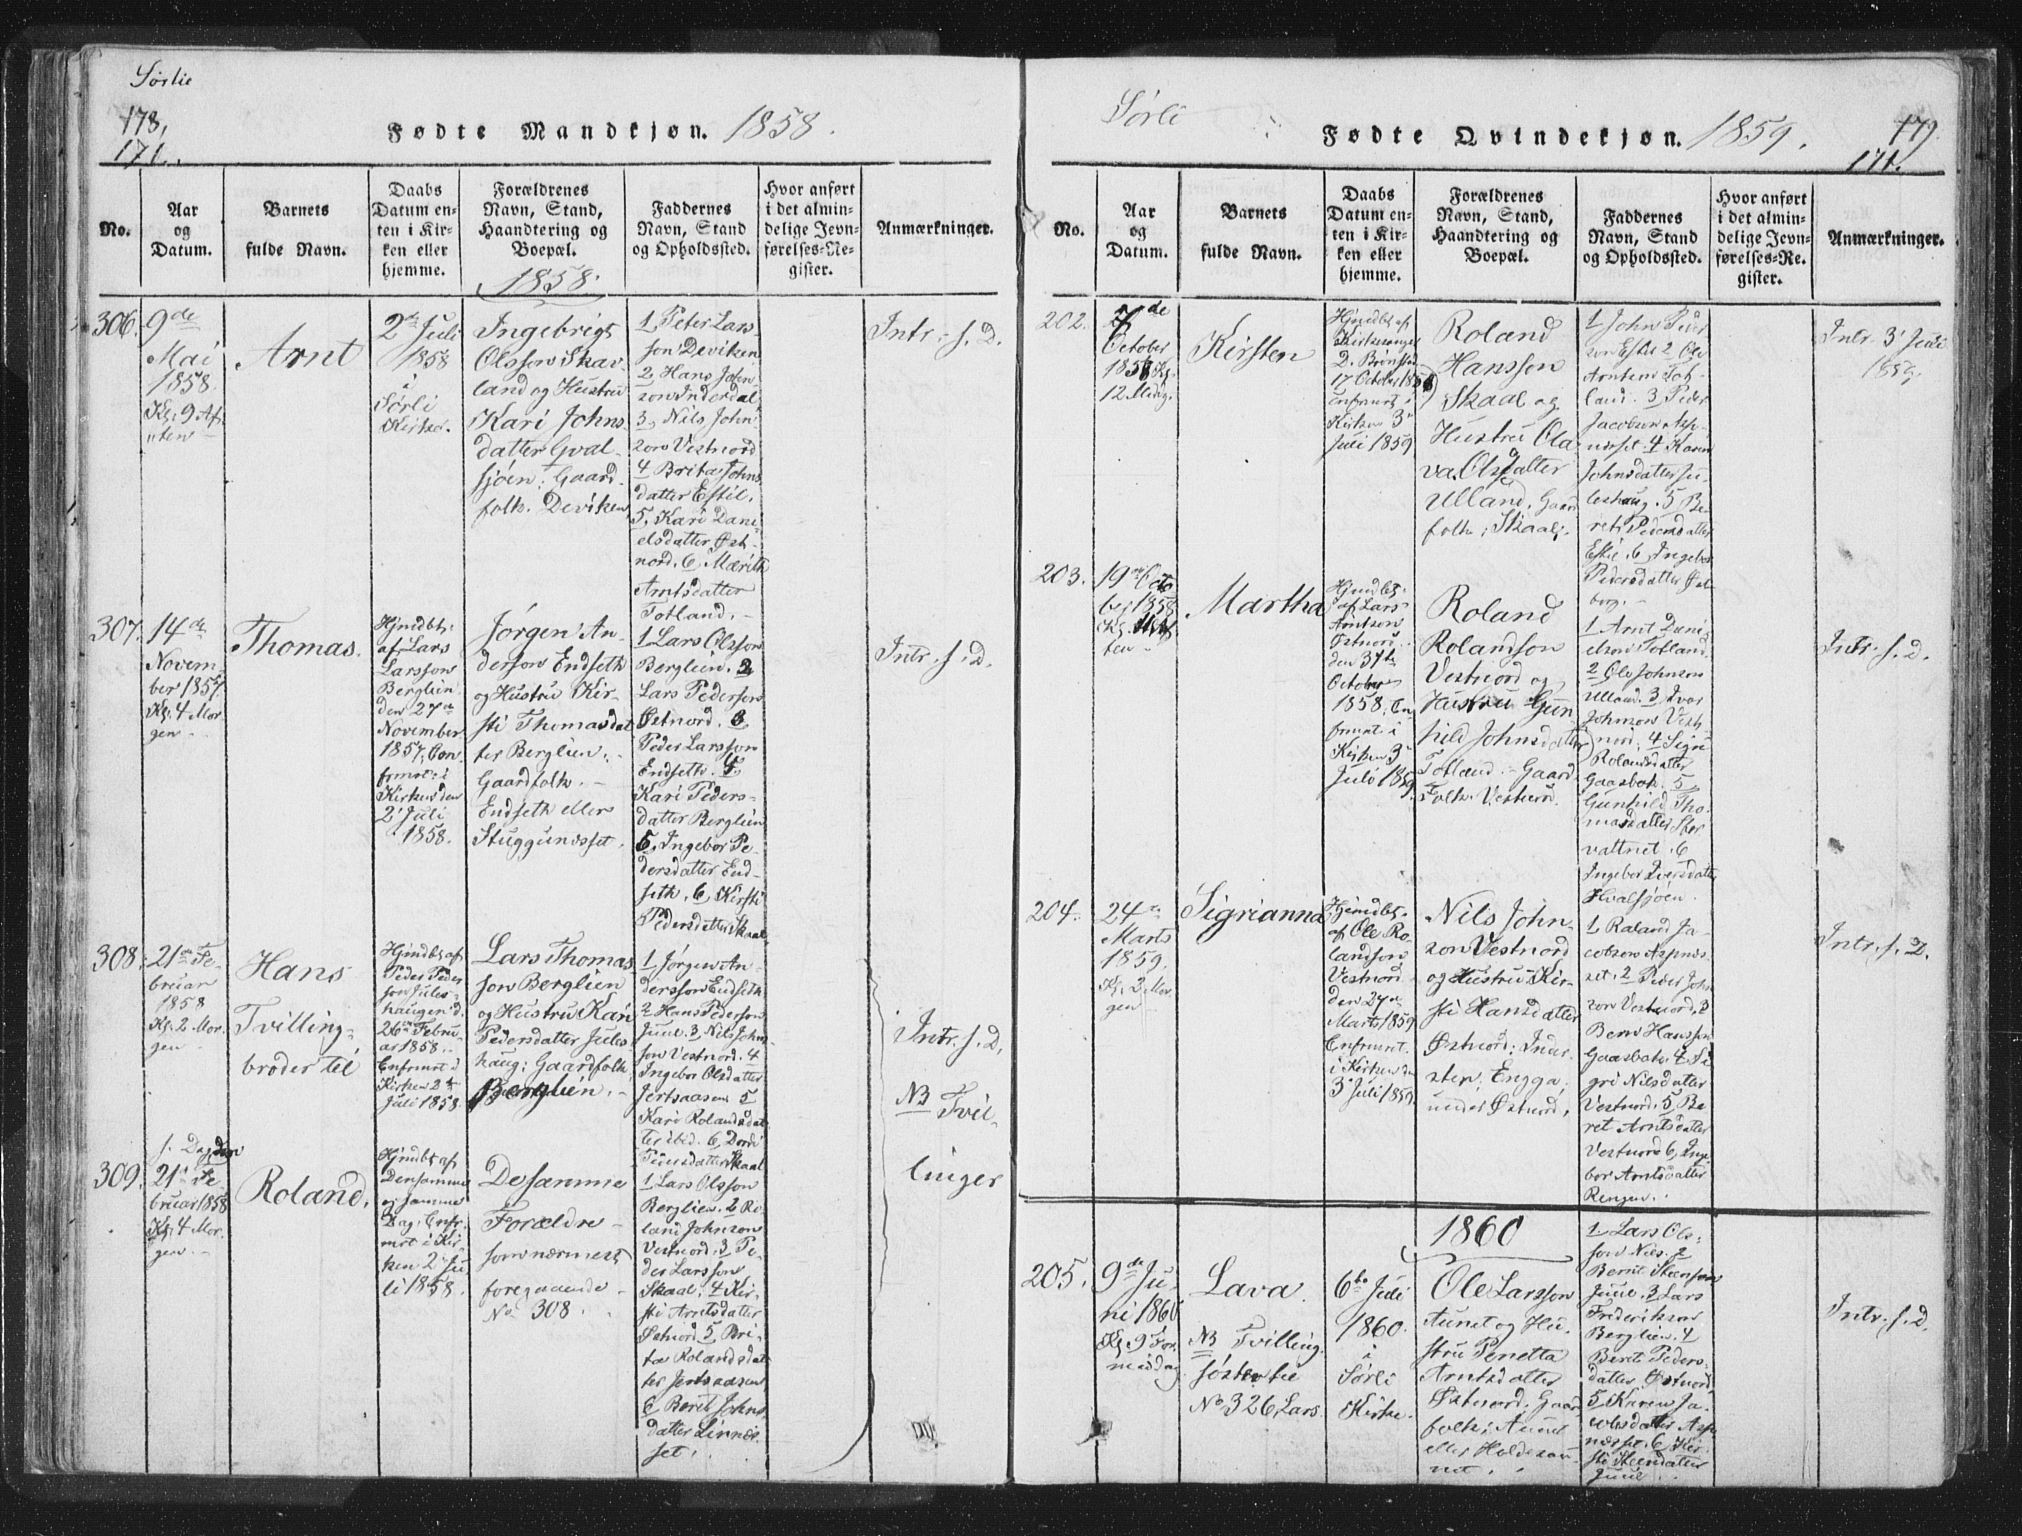 Sørlie
178.
171.
Fødte Mandkjøn. 1858.
No.
Aar
og
Datum.
Barnets
fulde Navn.
Daabs
Datum en-
ten i Kir-
ken eller
hjemme.
Forældrenes
Navn, Stand,
Haandtering og
Boepæl.
1858.
Faddernes
Navn, Stand
og Opholdssted.
Hvor anført
i det almin-
delige Jevn-
førelses-Re-
gister.
Anmærkninger.
306.
9de
Mai
1858.
Kl. 9 Af-
ten
Arnt
2den Juli
1858
i
Sørli
Kirke.
Ingebrigt
Olsson Skav-
land og Hustru
Kari Johns-
datter Gval-
sjøen; Gaard-
folk. Deviken
1, Peter Lars-
son Deviken
2, Hans John-
son Inderdal
3, Nils John-
son Vestnord
4 Brita Johns-
datter Estil.
5, Kari Dani-
elsdatter Øst-
nord. 6 Mærith
Arntsdatter
Totland.
Intr. s. D.
307.
14de
Novem-
ber 1857.
Kl. 4 Mor-
gen
Thomas.
Hjmdbt.
af Lars
Larsson
Berglien
den 27de
November
1857; Con-
frmrt i
Kirken den
2' Juli
1858.
Jørgen An-
dersson Endseth
og Hustru Kir-
sti Thomasdat-
ter Berglien;
Gaardfolk.
Endseth eller
Stuggunesset.
1 Lars Olsson
Berglien. 2
Lars Pederson
Østnord. 3
Peder Larsson
Endseth. 4
Kari Peders-
datter Berglien
5, Ingebor Pe-
dersdatter End-
seth. 6 Kirsti
Pedersdatter Skaal
Intr. s. D.
308.
21de Fe-
bruar
1858
Kl. 2 Mor-
gen
Hans
Tvilling-
broder til
Hjmdbt af
Peder Peder-
son Jules-
haugen d.
26de Febru-
ar 1858.
Enfrmrt i
Kirken 2de
Juli 1858.
Lars Thomas-
son Berglien
og Hustru Kari
Pedersdatter Jules-
haug; Gaardfolk
Berglien.
1 Jørgen An-
dersson Endseth
2 Hans Pederson
Juul. 3 Nils John-
son Vestnord. 4
Ingebor Olsdatter
Jertsaasen 5
Kari Rolandsdat-
ter ibid. 6, Dordi
Pedersdatter Skaal
Intr. s. D.
NB Tvil-
linger
309.
s. Dag den
21de Fe-
bruar 1858
Kl. 4 Mor-
gen
Roland.
Hjmdbt af
Densamme
og samme
Dag; Enfr-
mrt i Kir-
ken 2' Ju-
li 1858.
Desamme
Forældre
som nærmest
foregaaende
No 308.
1 Lars Olsson
Berglien. 2 Ro-
land Johnson
Vestnord. 3 Pe-
der Larsson
Skaal. 4 Kir-
sti Arntsdatter
Østnord 5 Bri-
ta Rolandsdat-
ter Jertsaasen
6 Berit Johns-
datter Linnes-
set.
Sørli
179.
171.
Fødte Qvindekjøn. 1859.
No.
Aar
og
Datum.
Barnets
fulde Navn.
Daabs
Datum en-
ten i Kir-
ken eller
hjemme.
Forældrenes
Navn, Stand,
Haandtering og
Boepæl.
Faddernes
Navn, Stand
og Opholdssted.
Hvor anført
i det almin-
delige Jevn-
førelses-Re-
gister.
Anmærkninger.
202.
October
1858 Kl.
12 Midng.
Kirsten
Hjmdbt af
Kirkesanger
17 October 1858
enfrmrt i
Kirken 3'
Juli 1859
Roland
Hansson
Skaal og
Hustru Ola-
va Olsdatter
Ulland, Gaard-
folk; Skaal.
1 John Peder-
son Estil 2 Ole
Arntsen Tot-
land. 3 Peder
Jacobson Asp-
næset 4 Karen
Johnsdatter Ju-
leshaug. 5 Be-
ret Pedersdatter
Estil. 6, Ingebor
Pedersdatter
Intr. 3' Juli
1859.
203.
19de Octo-
ber 1858
Martha
Hjmdbt.
af Lars
Arntson
Østnord
den 31te
October
1858; En-
frmrt i
Kirken 3'
Juli 1859.
Roland
Rolandson
Vestnord og
Hustru Gun-
hild Johnsdatter
Totland. Gaard-
folk. Vestnord.
1 Arnt Dani-
elson Totland.
2 Ole Johnson
Ulland. 3, Ivar
Johnson Vest-
nord. 4 Sigri
Rolandsdatter
Gaasbak. 5
Gunhild Tho-
masdatter Stor-
vattnet. 6
Ingebor Iversdatter
Kvalsjøen.
Intr. s. D.
204.
24de
Marts
1859.
Kl. 2 Mor-
gen
Sigrianna
Hjemdbt.
af Ole Ro-
landson
Vestnord
den 27de
Marts 1859
Enfrmrt.
i Kirken den
3' Juli 1859.
Nils John-
son Vestnord
og Hustru Kir-
sti Hansdatter
Østnord; Inder-
ster; Engga,
under Østnord.
1 Roland Ja-
cobson Aspnæs-
set. 2 Peder John-
son Vestnord, 3
Bern Hansson
Gaasbak. 4 Si-
gri Nilsdatter
Vestnord. 5 Be-
ret Arntsdatter
Vestnord 6, Inge-
bor Arntsdatter
Rengen.
Intr. s. D.
1860
205.
9de Ju-
ni 1860
Kl. 9 For-
middag
Lava
NB Tvilling-
søster til
No 326, Lars.
6te Juli
1860.
i
Sørli
Kirke.
Ole Larsson
Aunet og Hu-
stru Penetta
Arntsdatter
Østnord. Gaard-
folk; Aunet
eller Holdesau-
net.
1 Lars Ols-
son Nils. 2
Bernt Steenson
Juul. 3 Lars
Frederikson
Berglien. 4
Berit Peders-
datter Østnord,
5 Karen Ja-
cobsdatter Asp-
næsset. 6 Kir-
sti Steensdatter
Juul.
Intr. s. d.